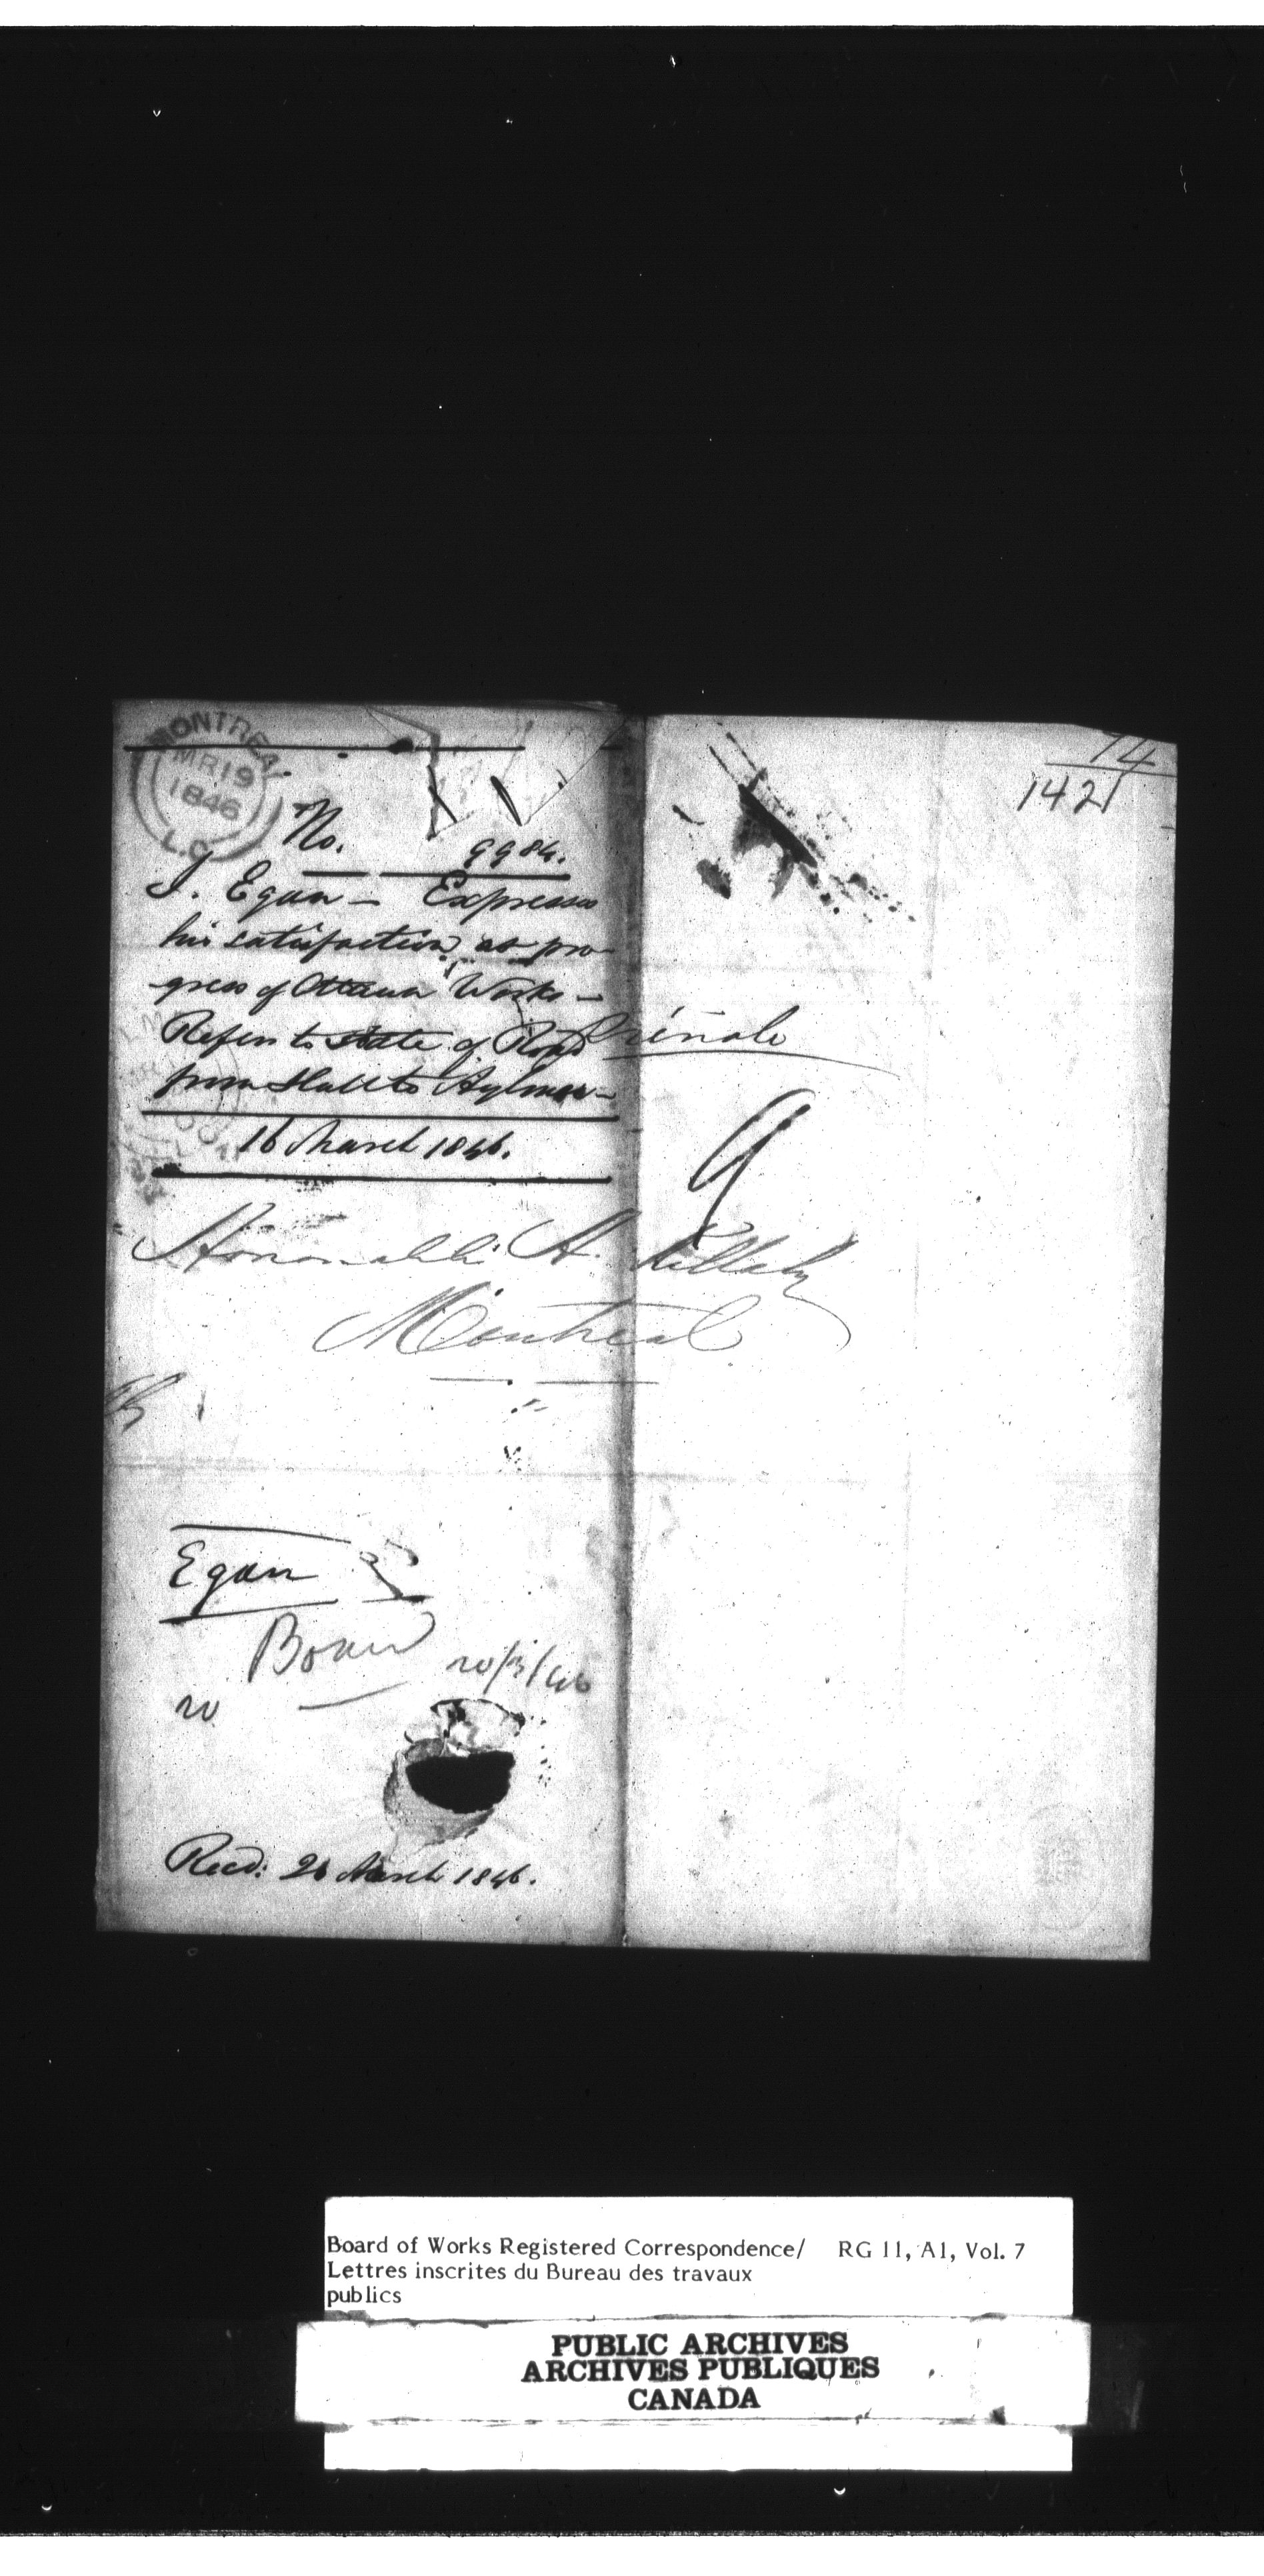 MONTREAL
MR 19
1846
L.C.
74
1421
No. 9984.
J. Egan - Expresses
his satisfaction at pro-
gress of Ottawa Works -
Refers to state of Road
from Hull to Aylmer -
16 March 1846.
Private
9
Honorable H. Killaly
Montreal
Egan
Board
20/3/46
Recd: 20 March 1846.
Board of Works Registered Correspondence/ RG 11, A1, Vol. 7
Lettres inscrites du Bureau des travaux
publics
PUBLIC ARCHIVES
ARCHIVES PUBLIQUES
CANADA